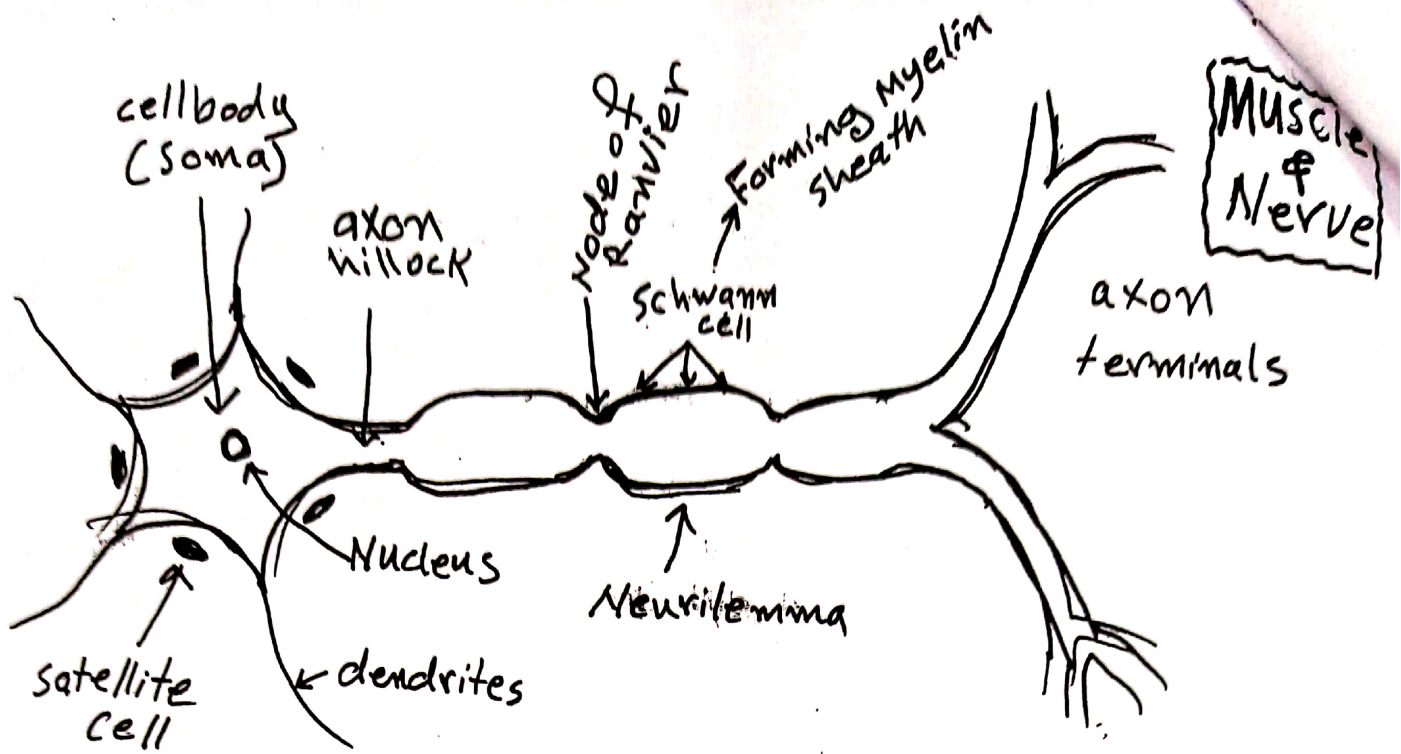 cellbody
(soma)
axon
hillock
Node of
Ranvier
Schwann
cell
Forming Myelin
sheath
Muscle
&
Nerve
axon
terminals
Nucleus
Neurilemma
satellite
cell
dendrites